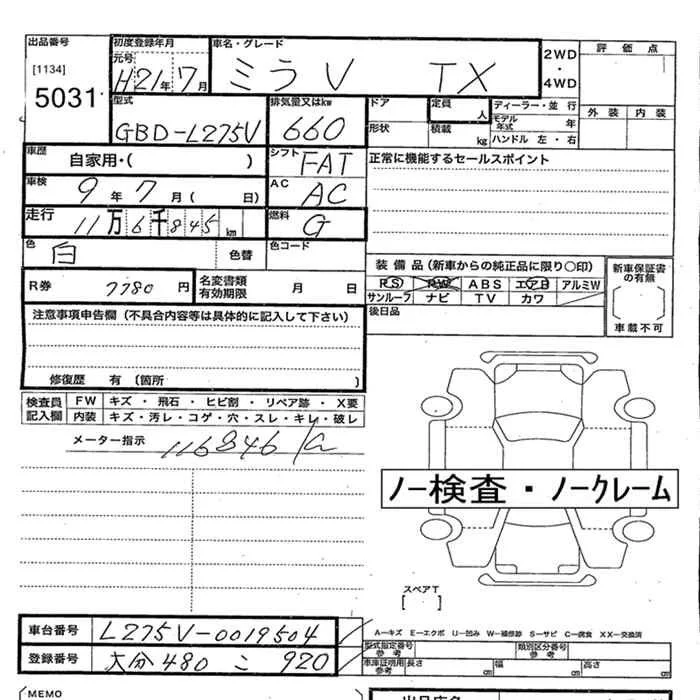 出品番号
[1134]
5031
初度登録年月
元号
H21年7月
車名・グレード
ミラV TX
2WD
・
4WD
評価点
外装 内装
型式
GBD-L275V
排気量又はkw
660
ドア
形状
定員
人
積載
kg
ディーラー・並行
モデル年式 年
ハンドル 左・右
車歴
自家用・( )
シフト
FAT
正常に機能するセールスポイント
車検
9年7月( 日)
AC
AC
走行
11万6千845km
燃料
G
色
白
色替
色コード
装備品(新車からの純正品に限り○印)
PS PW ABS エアB アルミW
サンルーフ ナビ TV カワ
新車保証書の有無
[ ]
車載不可
R券
7780円
名変書類有効期限
月 日
後日品
注意事項申告欄(不具合内容等は具体的に記入して下さい)
修復歴 有(箇所 )
検査員記入欄
FW キズ・飛石・ヒビ割・リペア跡・X要
内装 キズ・汚レ・コゲ・穴・スレ・キレ・破レ
メーター指示
116846
ノー検査・ノークレーム
スペアT
[ ]
車台番号
L275V-0019504
A―キズ E―エクボ U―凹み W―補修跡 S―サビ C―腐食 XX―交換済
型式指定番号 参考
類別区分番号 参考
登録番号
大分480こ920
車庫証明用参考
長さ 幅 高さ
(MEMO
出品店名